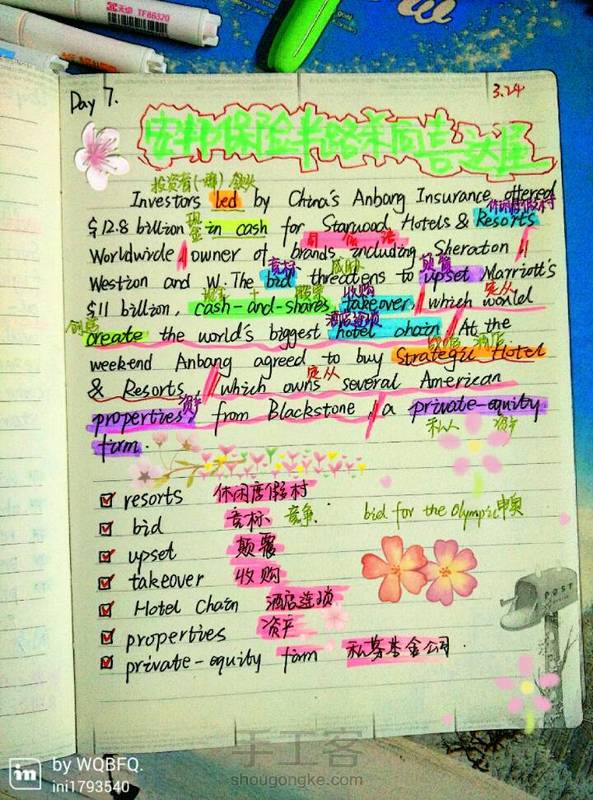 天卓 TF86320
Day 7.
3.24
安邦保险半路杀向喜达屋
投资者(一群) 领头
Investors led by China's Anbang Insurance offered
现金
休闲度假村
$12.8 billion in cash for Starwood Hotels & Resorts
Worldwide, owner of brands including Sheraton,
竞标 威胁 颠覆
Westion and W. The bid threatens to upset Marriott's
现金 + 股票 收购 定从
$11 billion, cash-and-shares takeover, which world
创造 酒店连锁
create the world's biggest hotel chain. At the
酒店
weekend Anbang agreed to buy Strategic Hotel
定从
& Resorts, which owns several American
资产
properties, from Blackstone, a private-equity
私人
firm.
resorts 休闲度假村
bid 竞标 竞争. bid for the Olympic 申奥
upset 颠覆
takeover 收购
Hotel Chain 酒店连锁
properties 资产
private-equity firm 私募基金公司.
POST
in by WQBFQ.
ini1793540
手工客
shougongke.com